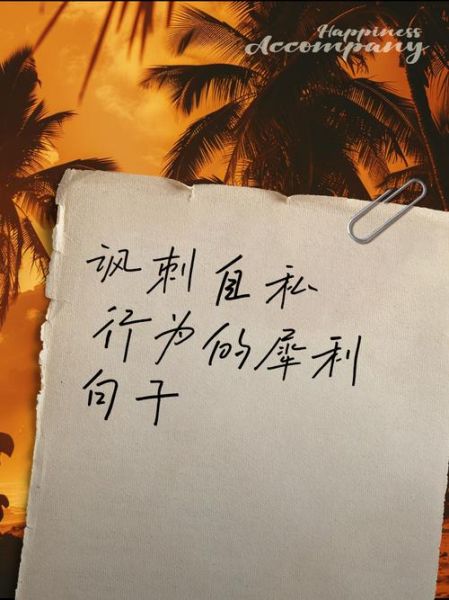 Happiness
Accompany
讽刺自私
行为的犀利
句子